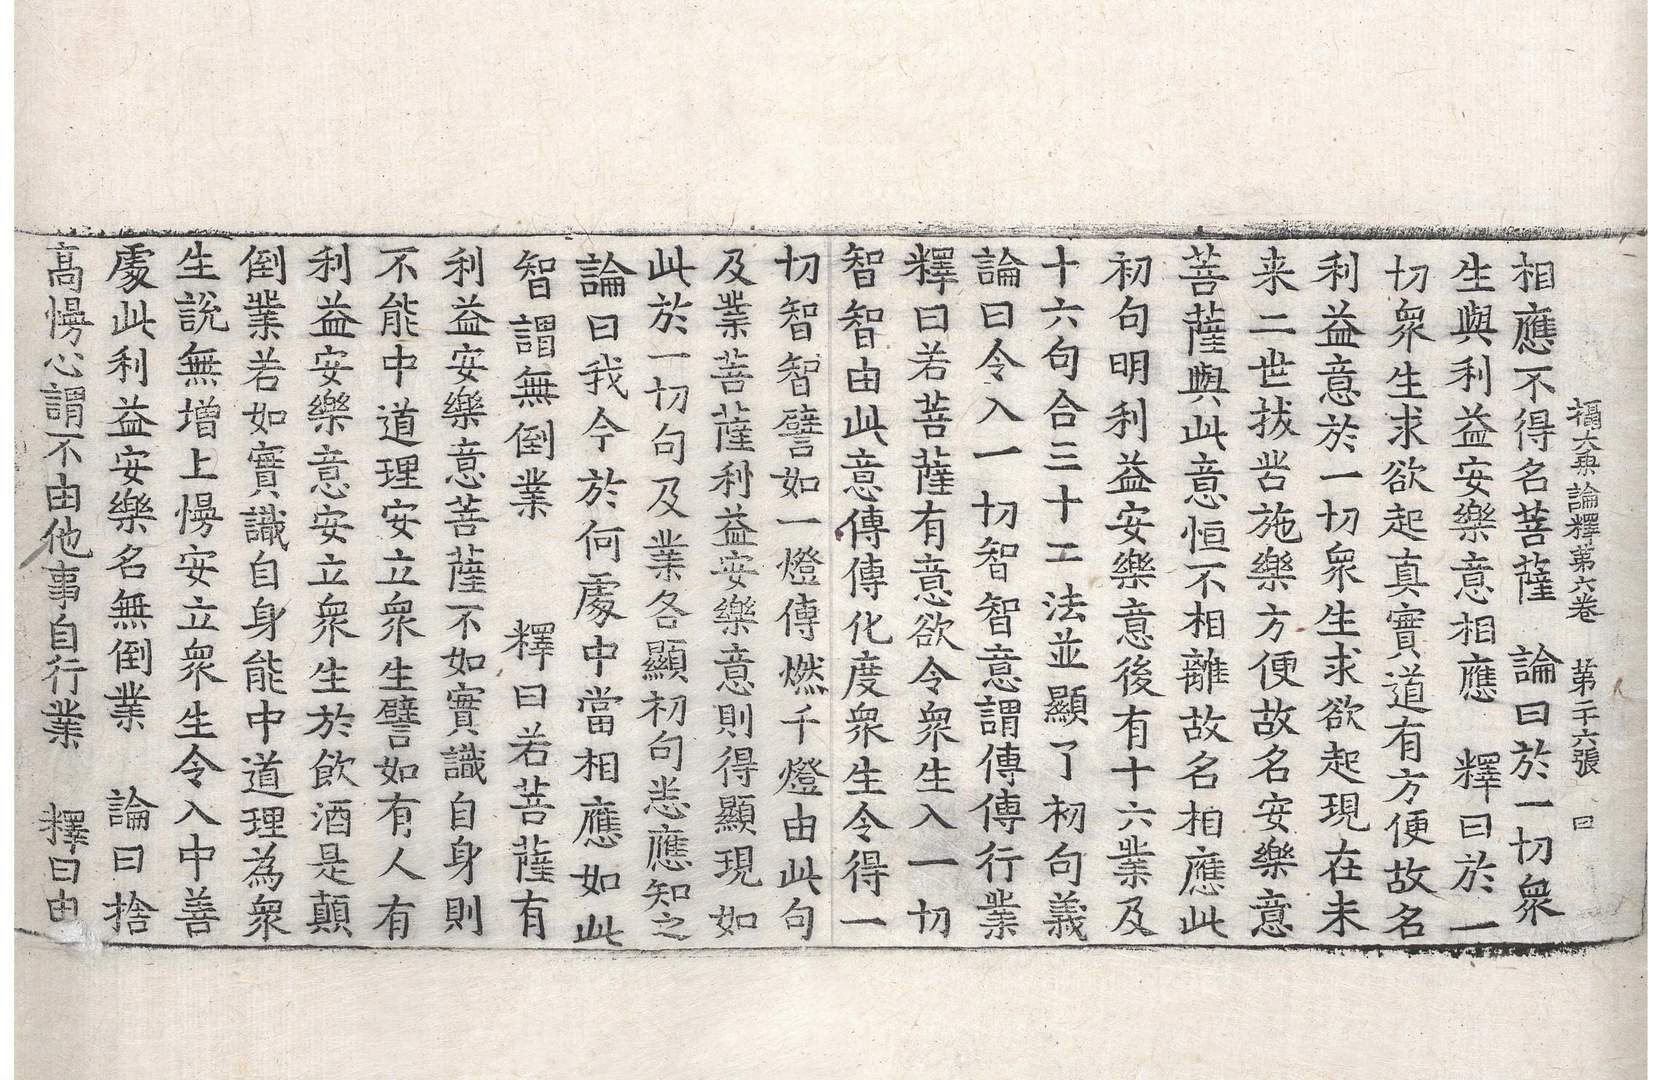 攝大乗論釋第六卷　第二十六張　囗
相應不得名菩薩　論曰於一切衆
生與利益安樂意相應　釋曰於一
切衆生求欲起真實道有方便故名
利益意於一切衆生求欲起現在未
来二世拔苦施樂方便故名安樂意
菩薩與此意恒不相離故名相應此
初句明利益安樂意後有十六業及
十六句合三十二法並顯了初句義
論曰令入一切智智意謂傳傳行業
釋曰若菩薩有意欲令衆生入一切
智智由此意傳傳化度衆生令得一
切智智譬如一燈傳燃千燈由此句
及業菩薩利益安樂意則得顯現如
此於一切句及業各顯初句悉應知之
論曰我今於何處中當相應如此
智謂無倒業　釋曰若菩薩有
利益安樂意菩薩不如實識自身則
不能中道理安立衆生譬如有人有
利益安樂意安立衆生於飲酒是顛
倒業若如實識自身能中道理為衆
生說無增上慢安立衆生令入中善
處此利益安樂名無倒業　論曰捨
高慢心謂不由他事自行業　釋曰由